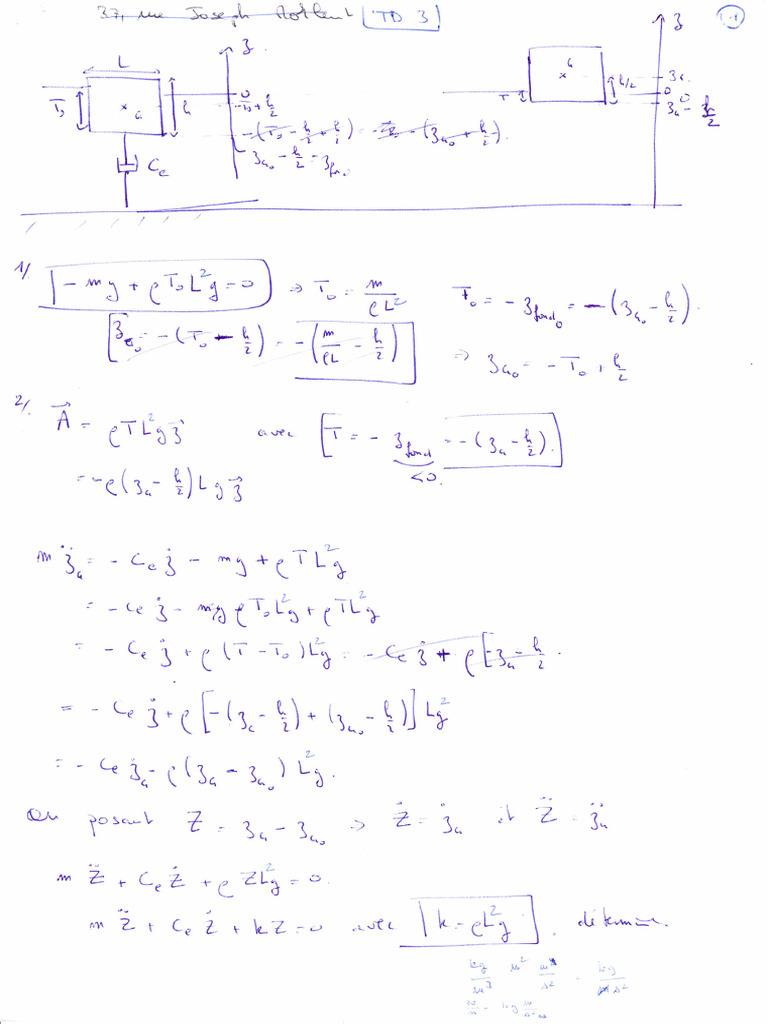 37, rue Joseph TD 3
1.1
L
z
T₀
G
h
0
-T₀ + h/2
-(T₀ - h/2 + h/2) = -z - (z_{G0} + h/2)
z_{G0} - h/2 = z_{f0}
C_e
z
G
h/2
z_G
0
z_G - h/2
1/ -mg + ρT₀L²g = 0 ⇒ T₀ = m/ρL² T₀ = -z_{fond₀} = -(z_{G0} - h/2)
z_{G0} = -(T₀ - h/2) = -(m/ρL - h/2) ⇒ z_{G0} = -T₀ + h/2
2/ A⃗ = ρTL²g z⃗ avec T = -z_{fond} = -(z_G - h/2).
<0.
= -ρ(z_G - h/2)Lg z⃗
m z̈_G = -C_e ż - mg + ρTL²g
= -C_e ż - mg ρT₀L²g + ρTL²g
= -C_e ż + ρ(T - T₀)L²g = -C_e ż + ρ[-z_G - h/2
= -C_e ż + ρ[-(z_G - h/2) + (z_{G0} - h/2)]Lg²
= -C_e ż_G - ρ(z_G - z_{G0})L²g.
En posant Z = z_G - z_{G0} ⇒ Ż = ż_G et Z̈ = z̈_G
m Z̈ + C_e Ż + ρZL²g = 0.
m Z̈ + C_e Ż + kZ = 0 avec k = ρL²g . détermine.
kg/m³ m² m/s² = kg/s²